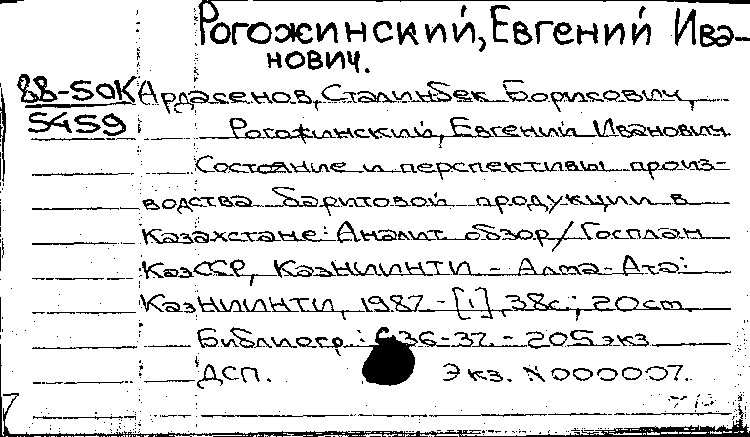 Рогожинский, Евгений Ива-
нович.
88-50К Ардасенов, Сталинбек Борисович,
5459 Рогожинский, Евгений Иванович
Состояние и перспективы произ-
водства баритовой продукции в
Казахстане: Аналит. обзор/Госплан
КазССР, КазНИИНТИ - Алма-Ата:
КазНИИНТИ, 1987.-[1], 38с.; 20см.
Библиогр.: с 36-37. - 205 экз
ДСП. Экз. N000007.